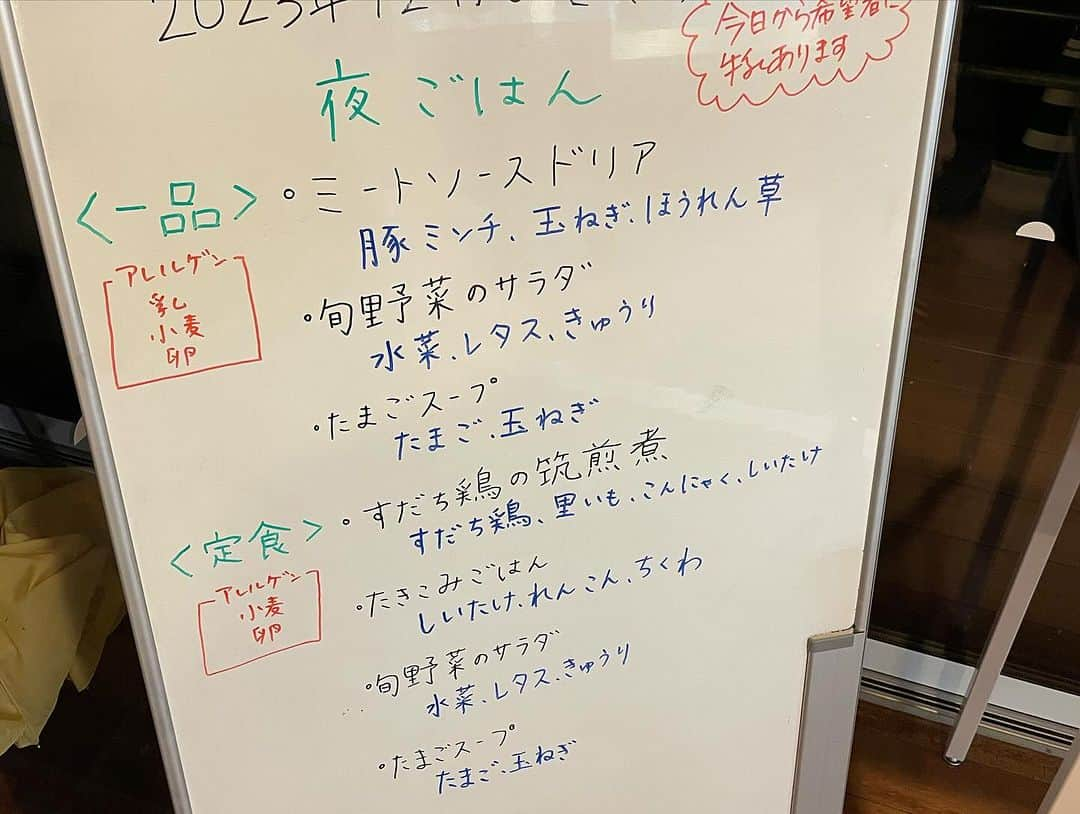 2023年12月
今日から希望者に
牛乳あります
夜ごはん
<一品>
・ミートソースドリア
豚ミンチ、玉ねぎ、ほうれん草
アレルゲン
乳
小麦
卵
・旬野菜のサラダ
水菜、レタス、きゅうり
・たまごスープ
たまご、玉ねぎ
<定食>
・すだち鶏の筑煎煮
すだち鶏、里いも、こんにゃく、しいたけ
アレルゲン
小麦
卵
・たきこみごはん
しいたけ、れんこん、ちくわ
・旬野菜のサラダ
水菜、レタス、きゅうり
・たまごスープ
たまご、玉ねぎ